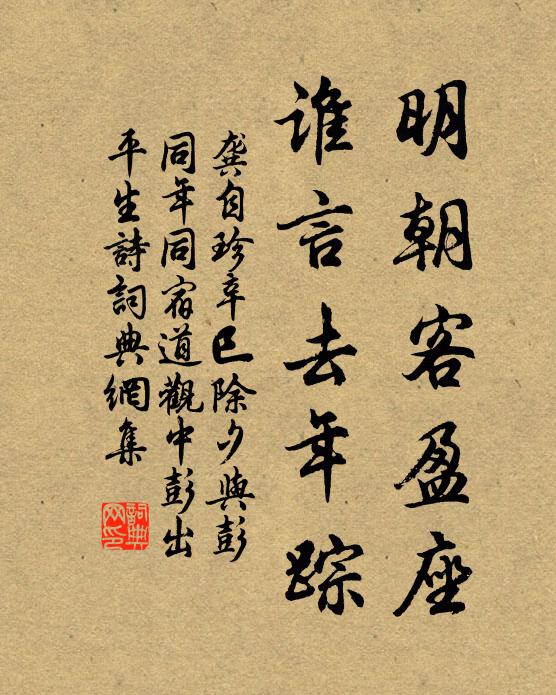 明朝客盈座
谁言去年踪
龚自珍辛巳除夕與彭
同年同宿道觀中彭出
平生詩詞典網集
詞典网印